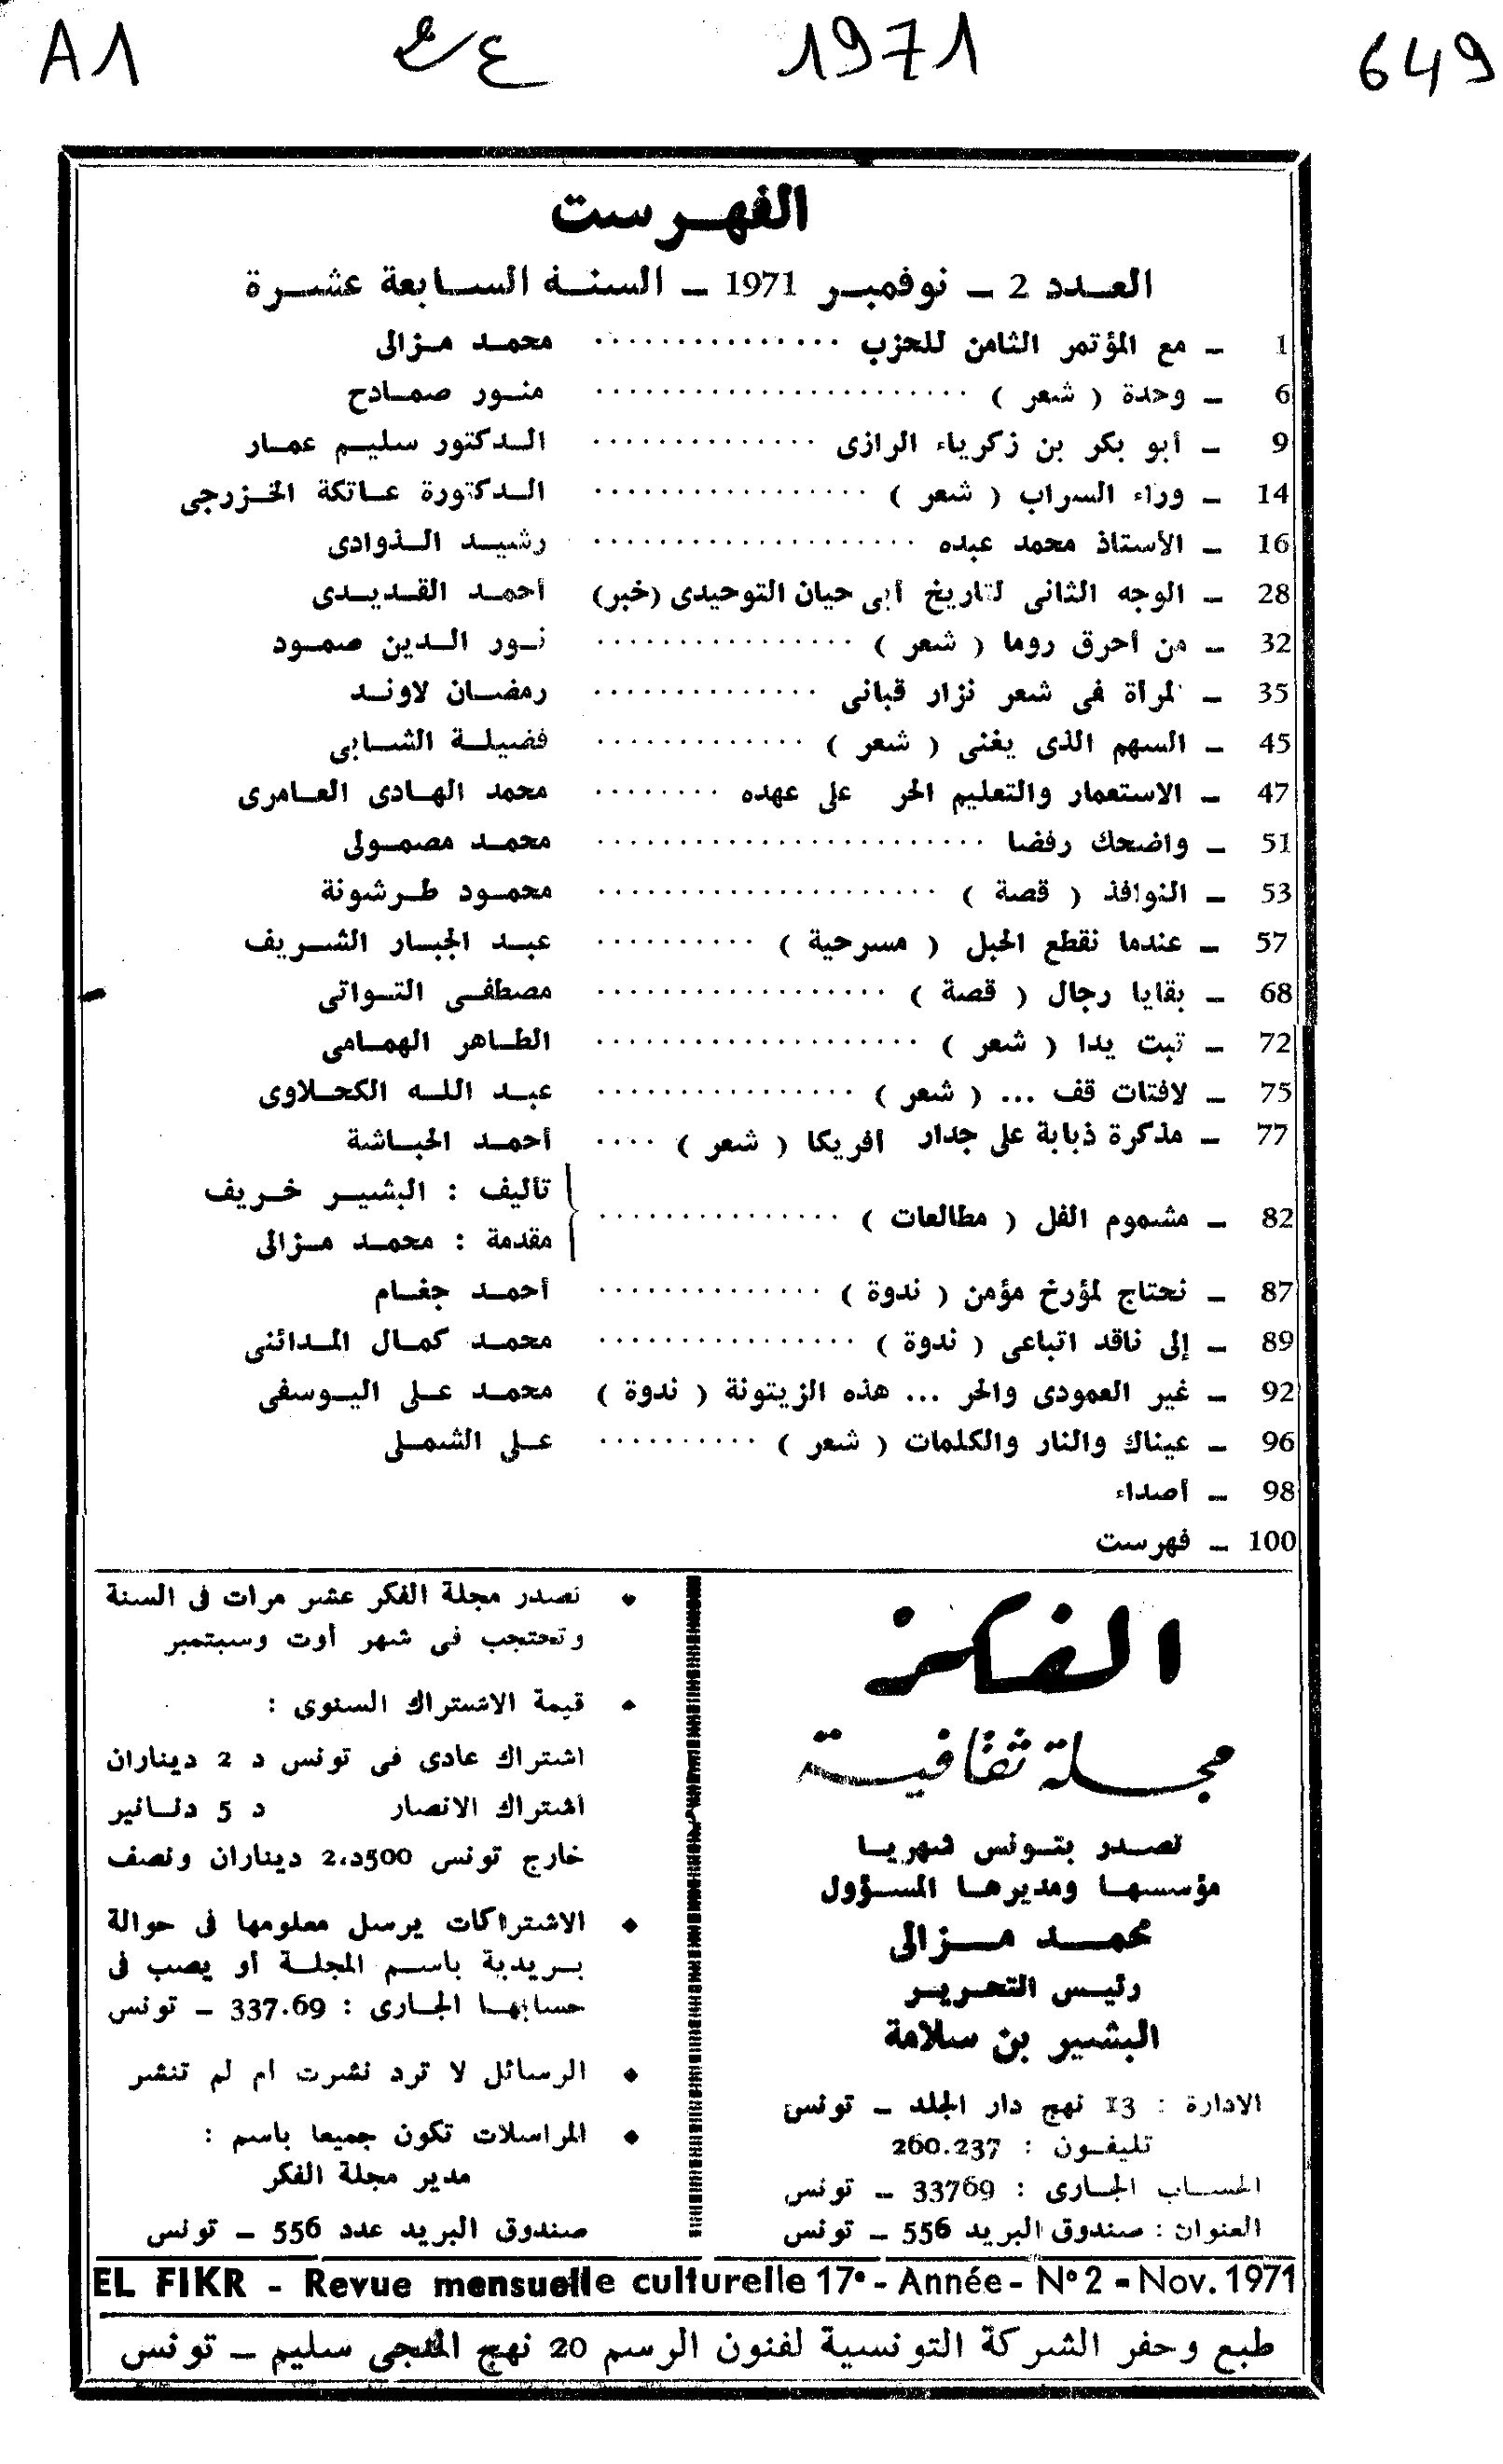 A1 ع 1971 649
الفهرست
العدد 2 ـ نوفمبر 1971 ـ السنة السابعة عشرة
1 ـ مع المؤتمر الثامن للحزب ............... محمد مزالى
6 ـ وحدة ( شعر ) ....................... منور صمادح
9 ـ أبو بكر بن زكرياء الرازى .............. الدكتور سليم عمار
14 ـ وراء السراب ( شعر ) ................. الدكتورة عاتكة الخزرجى
16 ـ الأستاذ محمد عبده .................... رشيد الذوادى
28 ـ الوجه الثانى لتاريخ أبى حيان التوحيدى (خبر) أحمد القديدى
32 ـ من أحرق روما ( شعر ) ................ نور الدين صمود
35 ـ المرأة فى شعر نزار قبانى .............. رمضان لاوند
45 ـ السهم الذى يغنى ( شعر ) ............. فضيلة الشابى
47 ـ الاستعمار والتعليم الحر على عهده ........ محمد الهادى العامرى
51 ـ واضحك رفضا ........................ محمد مصمولى
53 ـ النوافذ ( قصة ) ..................... محمود طرشونة
57 ـ عندما نقطع الحبل ( مسرحية ) .......... عبد الجبار الشريف
68 ـ بقايا رجال ( قصة ) .................. مصطفى التواتى
72 ـ تبت يدا ( شعر ) .................... الطاهر الهمامى
75 ـ لافتات قف ... ( شعر ) ................ عبد الله الكحلاوى
77 ـ مذكرة ذبابة على جدار افريكا ( شعر ) .... أحمد الحباشة
82 ـ مشموم الفل ( مطالعات ) ............... تأليف : البشير خريف
مقدمة : محمد مزالى
87 ـ نحتاج لمؤرخ مؤمن ( ندوة ) .............. أحمد جغام
89 ـ إلى ناقد اتباعى ( ندوة ) ................ محمد كمال المدائنى
92 ـ غير العمودى والحر ... هذه الزيتونة ( ندوة ) محمد على اليوسفى
96 ـ عيناك والنار والكلمات ( شعر ) .......... على الشملى
98 ـ أصداء
100 ـ فهرست
الفكر
مجلة ثقافية
تصدر بتونس شهريا
مؤسسها ومديرها المسؤول
محمد مزالى
رئيس التحرير
البشير بن سلامة
الادارة : 13 نهج دار الجلد ـ تونس
تليفون : 260.237
الحساب الجارى : 33769 ـ تونس
العنوان : صندوق البريد 556 ـ تونس
♦ تصدر مجلة الفكر عشر مرات فى السنة
وتحتجب فى شهر أوت وسبتمبر
♦ قيمة الاشتراك السنوى :
اشتراك عادى فى تونس د 2 ديناران
اشتراك الانصار د 5 دنانير
خارج تونس 500د،2 ديناران ونصف
♦ الاشتراكات يرسل معلومها فى حوالة
بريدية باسم المجلة أو يصب فى
حسابها الجارى : 337.69 ـ تونس
♦ الرسائل لا ترد نشرت ام لم تنشر
♦ المراسلات تكون جميعا باسم :
مدير مجلة الفكر
صندوق البريد عدد 556 ـ تونس
EL FIKR - Revue mensuelle culturelle 17e - Année - N° 2 - Nov. 1971
طبع وحفر الشركة التونسية لفنون الرسم 20 نهج المنجى سليم ـ تونس